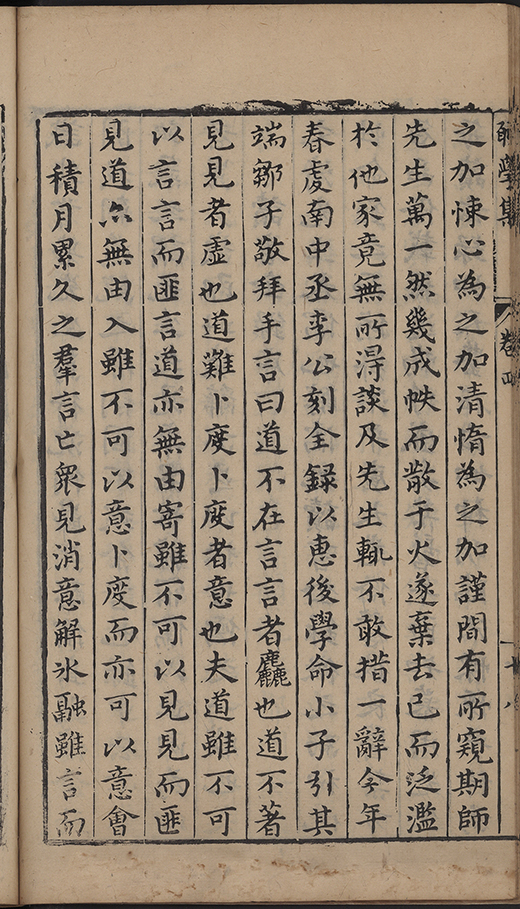 願學集
卷四
之加悚心為之加清惰為之加謹間有所窺期師
先生萬一然幾成帙而散于火遂棄去已而泛濫
於他家竟無所得談及先生輒不敢措一辭今年
春虔南中丞李公刻全錄以惠後學命小子引其
端鄒子敬拜手言曰道不在言言者麤也道不著
見見者虛也道難卜度卜度者意也夫道雖不可
以言言而匪言道亦無由寄雖不可以見見而匪
見道亦無由入雖不可以意卜度而亦可以意會
日積月累久之羣言亡眾見消意解冰融雖言而